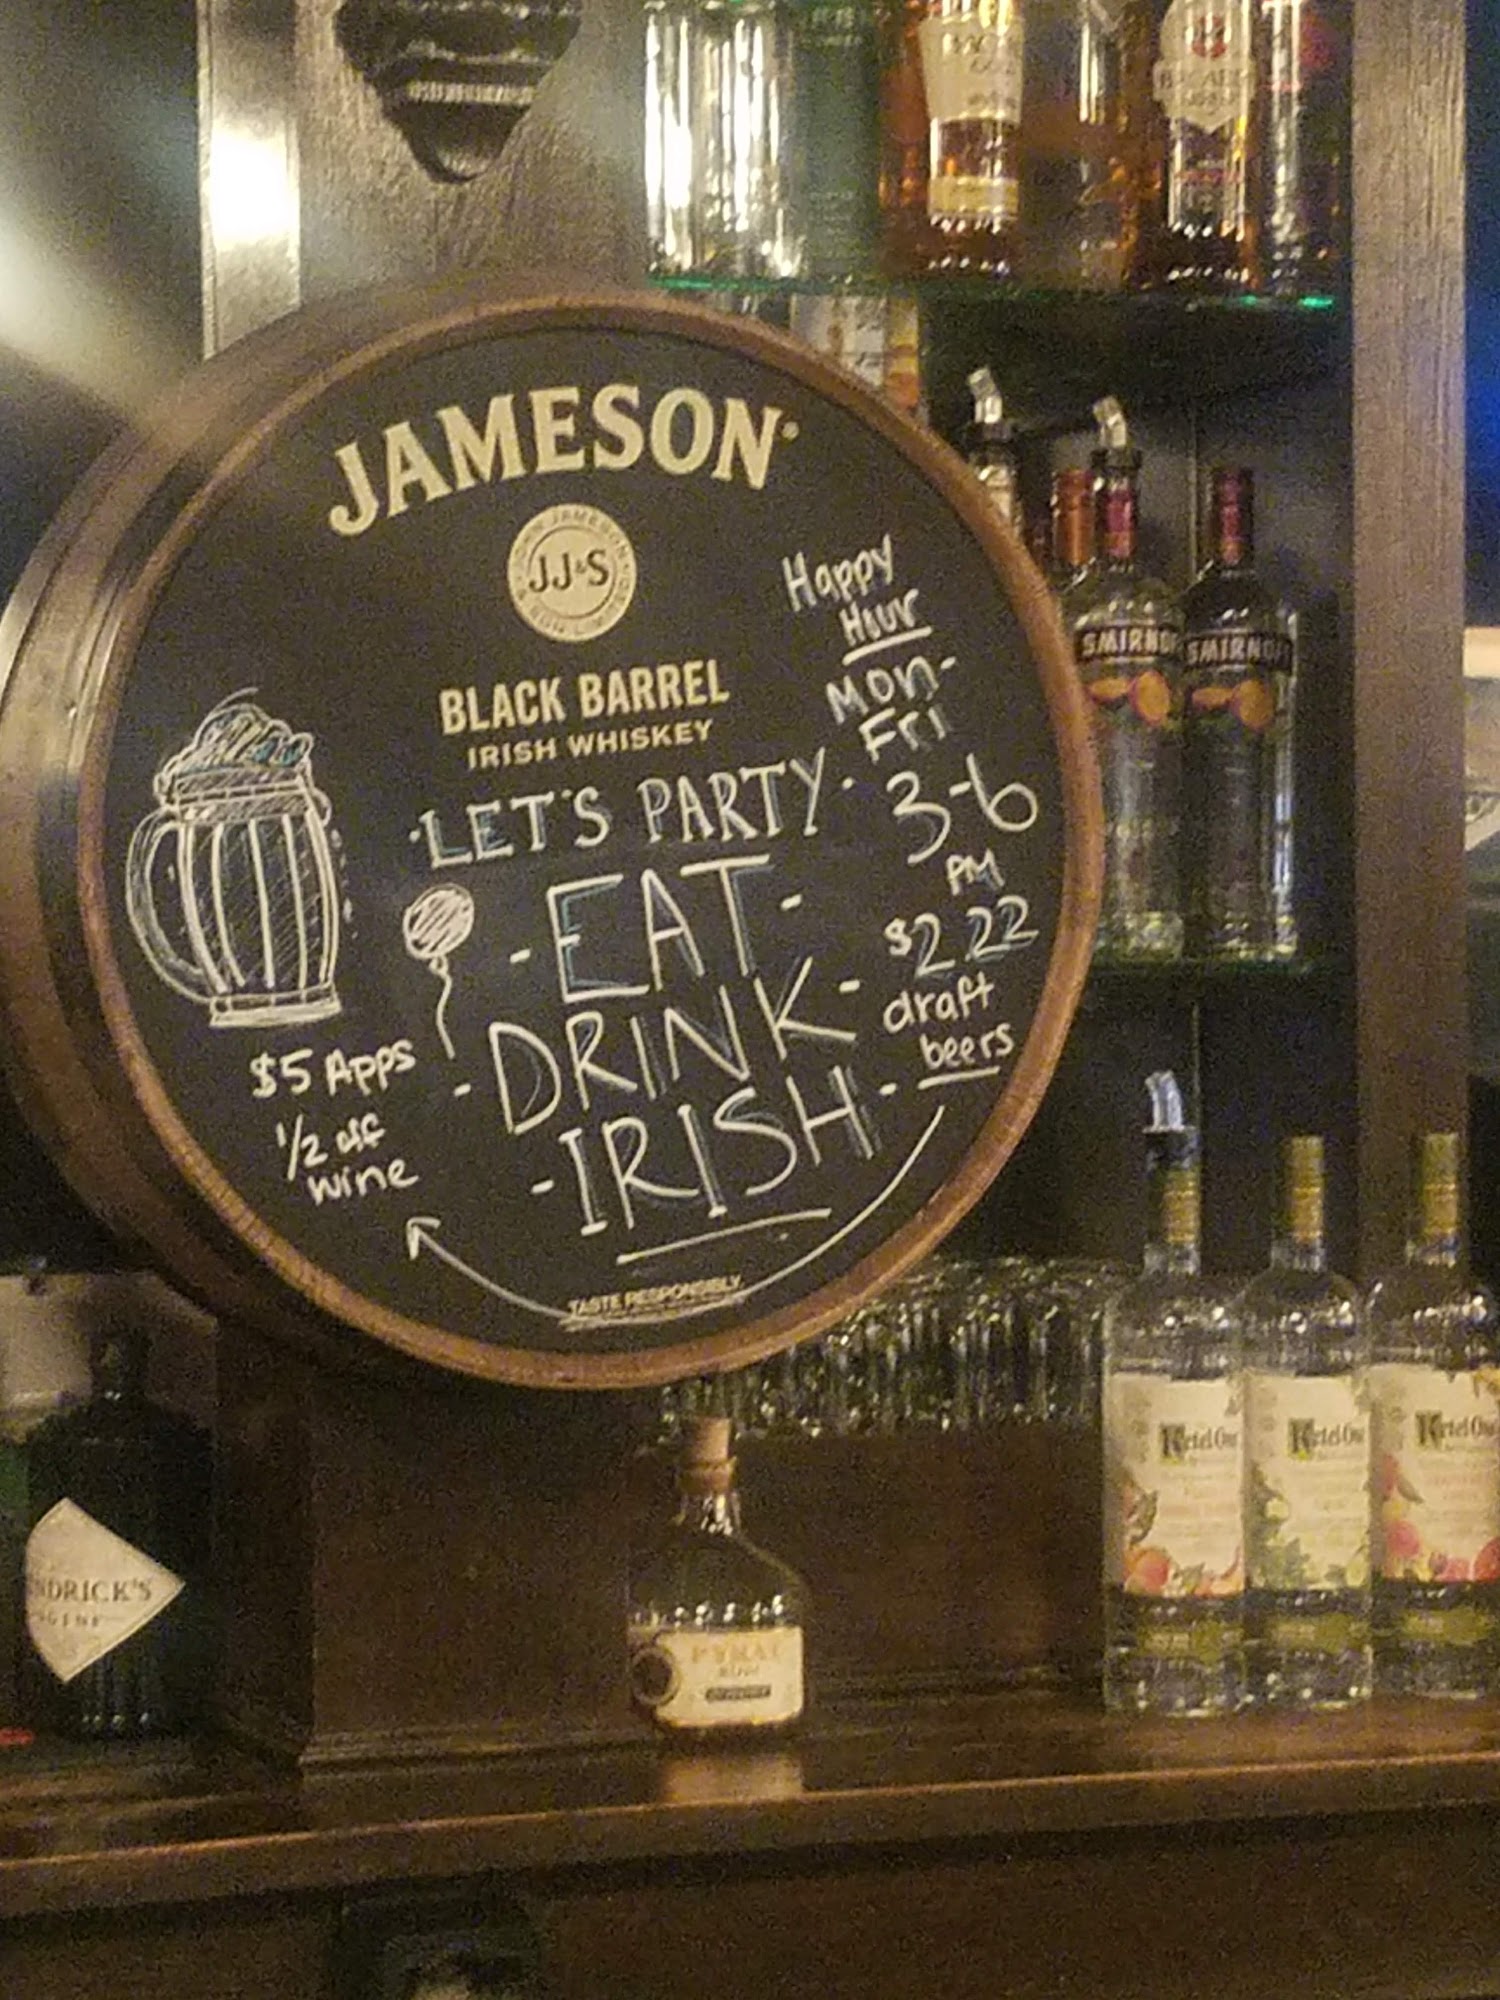 JAMESON
JJ&S
BLACK BARREL
IRISH WHISKEY
·LET'S PARTY·
-EAT-
-DRINK-
-IRISH-
Happy
Hour
Mon-
Fri
3-6
PM
$2.22
draft
beers
$5 Apps
1/2 off
wine
TASTE RESPONSIBLY.
SMIRNOFF
SMIRNOFF
Ketel One
Ketel One
Ketel One
NDRICK'S
PYRAT
RUM